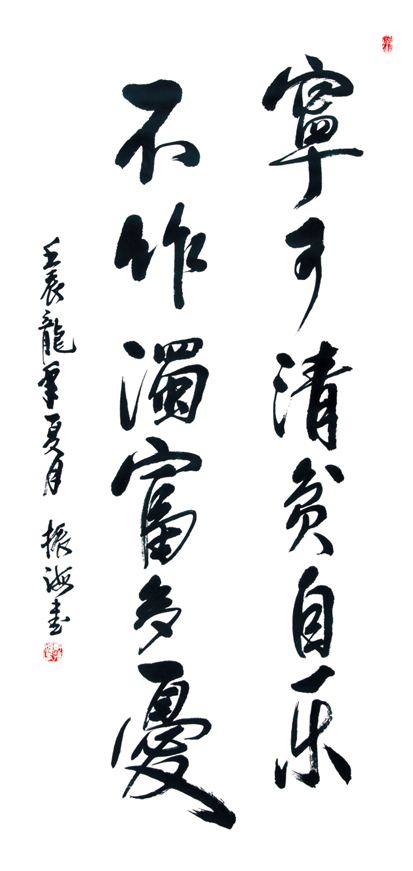 寧可清贫自乐
不作濁富多憂
壬辰龍年夏月 振海書